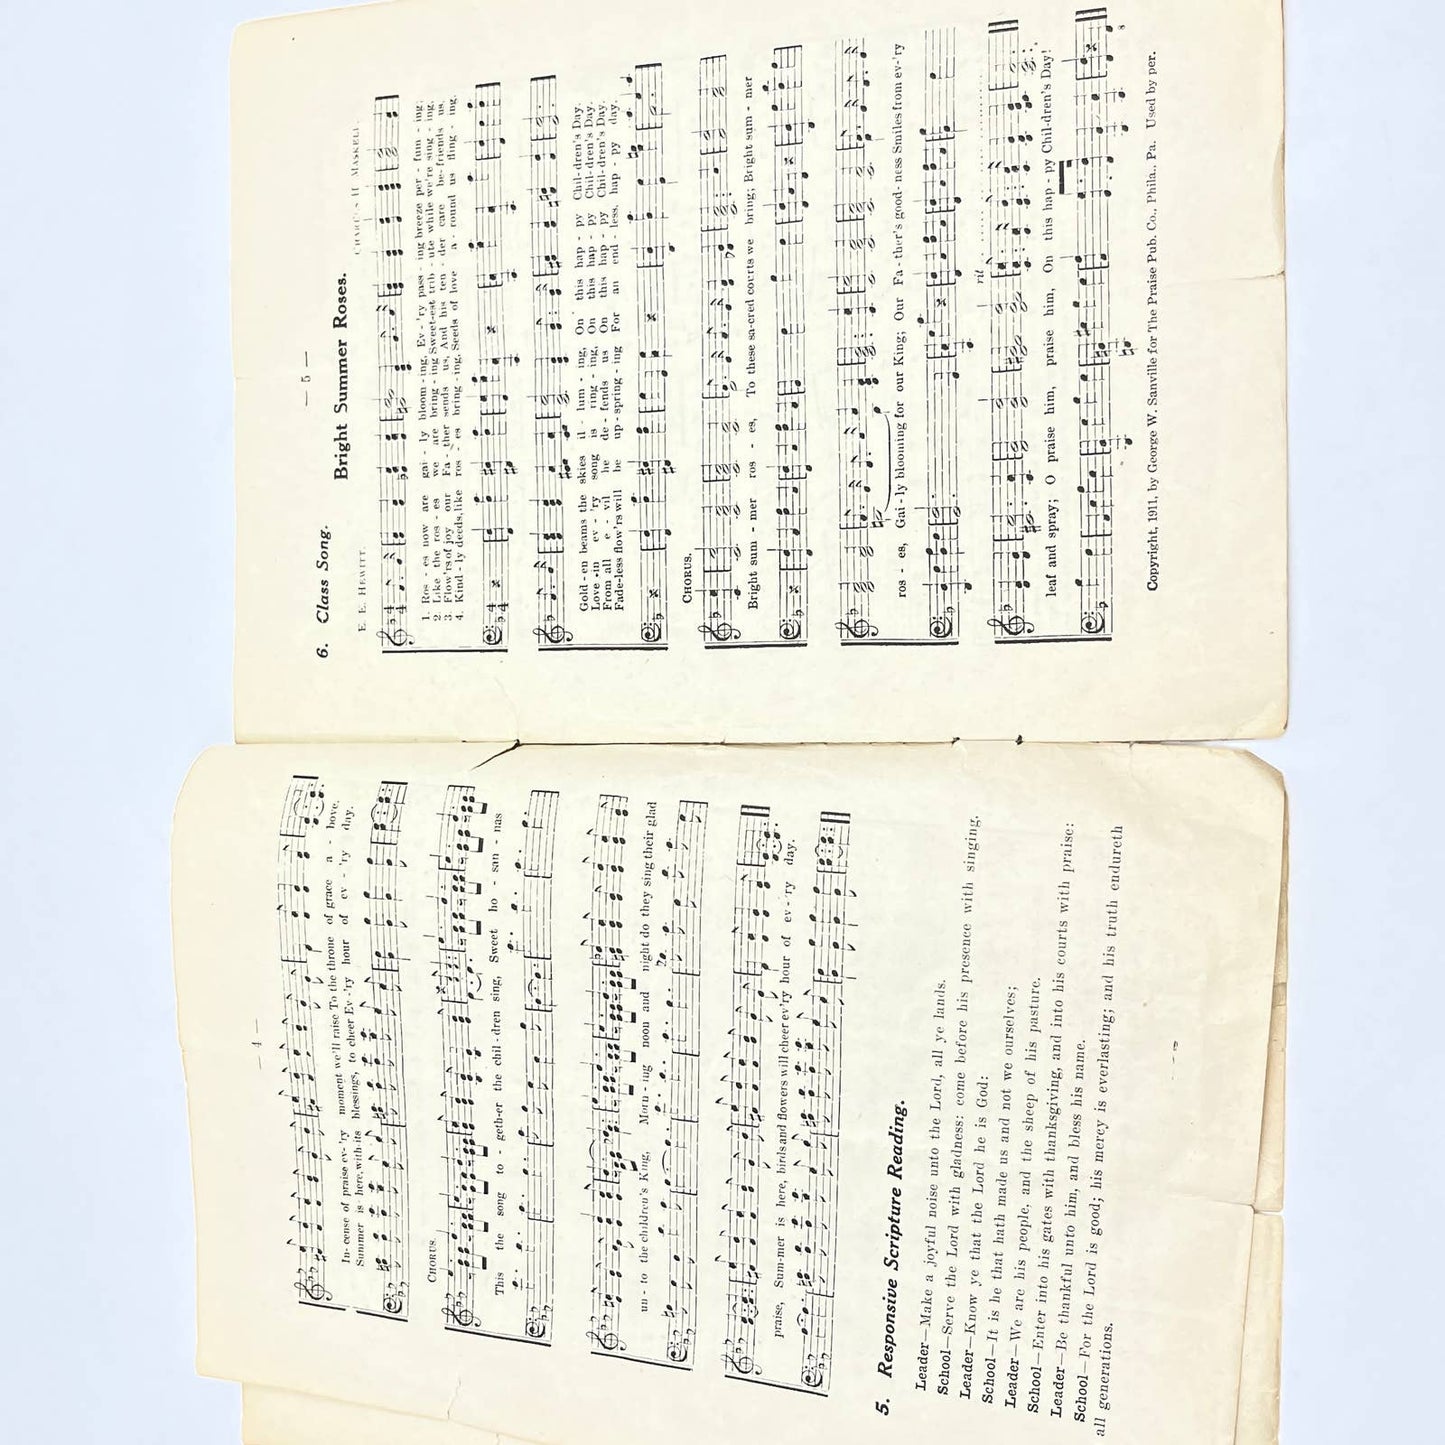 — 4 —
In-cense of praise ev-'ry moment we'll raise To the throne of grace a - bove.
Summer is here, with its blessings, to cheer Ev-'ry hour of ev - 'ry day.
CHORUS.
This the song to - geth-er the chil-dren sing, Sweet ho - san - nas
un - to the children's King, Morn - ing noon and night do they sing their glad
praise, Sum-mer is here, birds and flowers will cheer ev'ry hour of ev-'ry day.
5. Responsive Scripture Reading.
Leader—Make a joyful noise unto the Lord, all ye lands.
School—Serve the Lord with gladness: come before his presence with singing.
Leader—Know ye that the Lord he is God:
School—It is he that hath made us and not we ourselves;
Leader—We are his people, and the sheep of his pasture.
School—Enter into his gates with thanksgiving, and into his courts with praise:
Leader—Be thankful unto him, and bless his name.
School—For the Lord is good; his mercy is everlasting; and his truth endureth
all generations.
— 5 —
6. Class Song.
Bright Summer Roses.
E. E. HEWITT.
CHARLES H MASKELL
1. Ros - es now are gai - ly bloom - ing, Ev - 'ry pass - ing breeze per - fum - ing;
2 Like the ros - es we are bring - ing Sweet-est trib - ute while we're sing - ing,
3. Flow'rs of joy our Fa - ther sends us, And his ten - der care be - friends us,
4. Kind - ly deeds, like ros - es bring - ing, Seeds of love a - round us fling - ing,
Gold - en beams the skies il - lum - ing, On this hap - py Chil-dren's Day.
Love in ev - 'ry song is ring - ing, On this hap - py Chil-dren's Day.
From all e - vil he de - fends us On this hap - py Chil-dren's Day.
Fade-less flow'rs will be up - spring - ing For an end - less, hap - py day.
CHORUS.
Bright sum - mer ros - es, To these sa-cred courts we bring; Bright sum - mer
ros - es, Gai - ly blooming for our King; Our Fa - ther's good - ness Smiles from ev-'ry
rit
leaf and spray; O praise him, praise him, On this hap - py Chil-dren's Day!
8
Copyright, 1911, by George W. Sanville for The Praise Pub. Co., Phila., Pa. Used by per.